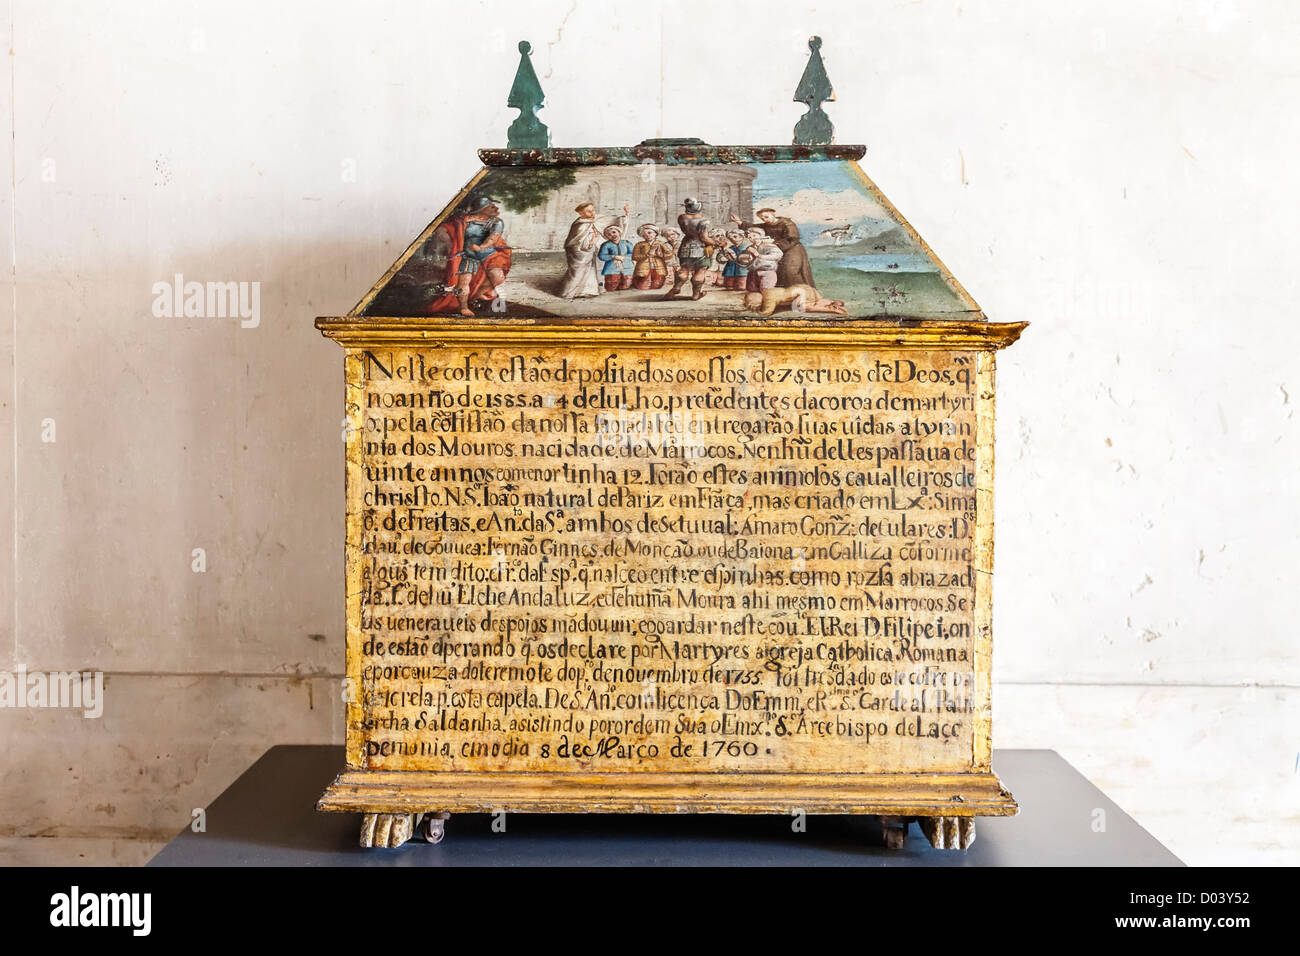 Neste cofre, estão depositados os ossos, de 7 servos de Deos, q̃
no anño de 1585. a 4 de Julho, pretẽdentes da coroa de martyri
o, pela cõfissão da nossa sagrada fee entregarão suas vidas a tyran
nia dos Mouros, na cidade, de Marrocos. Nenhũ delles passava de
vinte annos, e o menor tinha 12. Forão estes animosos cavalleiros de
christo. N. S. João natural de Pariz em Frãça, mas criado em Lxª. Sima
õ, de Freitas, e Anto. da Sª. ambos de Setuual: Amaro Gonz: de Culares: D.
dau. de Gouuea: Fernão Ginnes, de Monção, ou de Baiona em Galliza cõforme
alguns tem dito: e frº. da Espª. q̃ nalceo entre espinhas, como roza abrazad
de hũ Elche Andaluz, e de huma Moura ahi mesmo em Marrocos. Se
us veneraueis despojos mãdou uir, e goardar neste cõuto. El Rei D. Filipe I, on
de, estão esperando q̃ os declare por Martyres a igreja Catholica Romana
e por cauza do terremoto do pº. de novembro de 1755. foi tresladado este cofre da
p. esta capela. De S. Anto. com licença Do Emmo. e Rmo. S. Cardeal Patri
archa Saldanha, asistindo por ordem Sua o Exmo. S. Arcebispo de Lacc
demonia, em o dia 8 de Março de 1760.
alamy
alamy
Image ID: D03Y52
www.alamy.com